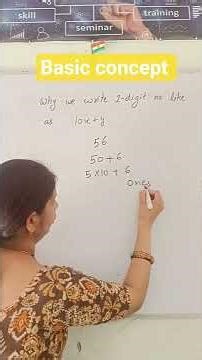 skill
training
seminar
Basic concept
Why we write 2-digit no like
as 10x+y
56
50+6
5×10+6
ones